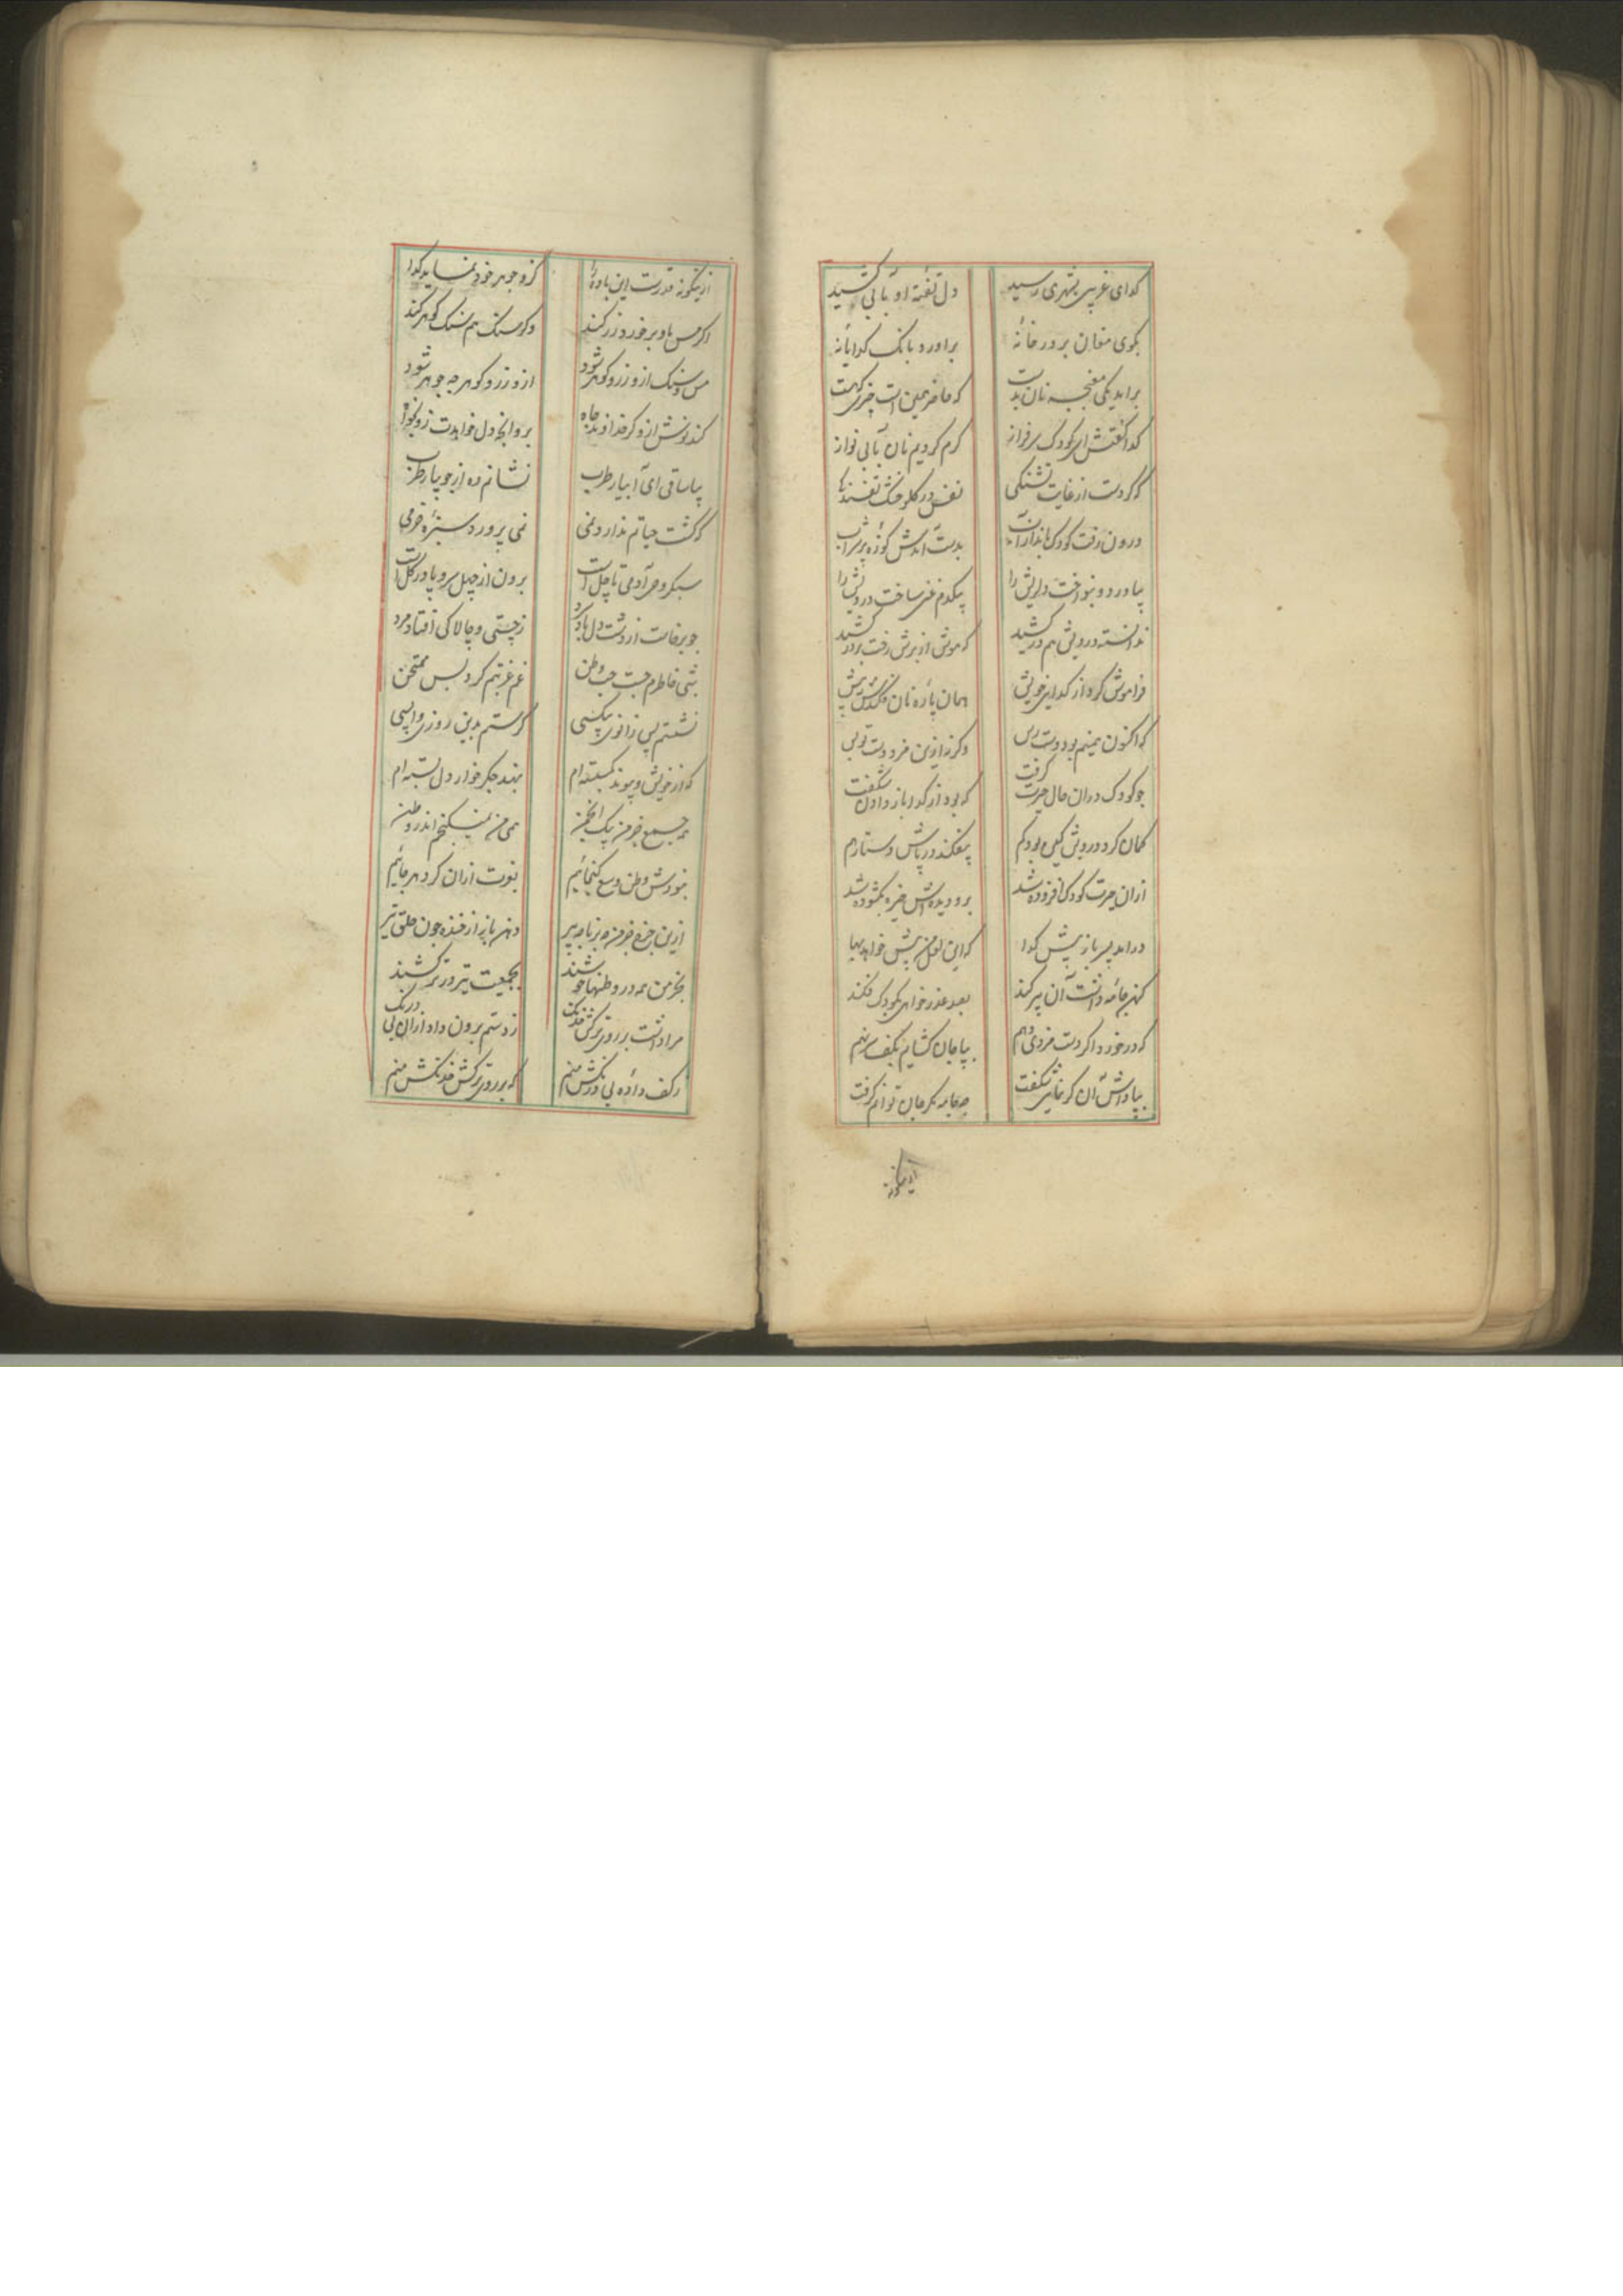 کدای غریبی بشهری رسید
دل تفتهٔ او بآبی کشید
بکوی مغان بر در خانهٔ
براورد بانک کدایانهٔ
برامد یکی مغبچه نان بدست
که حاضر همین است چیزی که هست
کدا کفتش ای کودک سرفراز
کرم کردیم نان بآبی نواز
که کردست از غایت تشنکی
نفس در کلو خشک تفسندها
درون رفت کودک باندازان
بدست امدش کوزهٔ پر شراب
بیاورد و بنواخت درویش را
بیکدم غنی ساخت درویش را
ندانسته درویش هم درکشید
که هوش از برش رفت
فراموش کرد از کدایی خویش
همان پاره نان پیش
که اکنون بمینم بود دست رس
وکر نه ازین مزد دست تو بس
چو کودک دران حال حیرت کرفت
که بود از کدا باز دادن شکفت
کمان کرد درویش کین بود کم
بیفکند در پاش دستار هم
ازان حیرت کودک افزوده شد
برو دیدهاش خیره بکشوده شد
درامد پسر باز پیش کدا
که این لعل من پیش خواهد بها
کهن جامه داشت آن پیر کند
بصد عذرخواهی بکودک فکند
که در خورد اکر دست مزدی دهم
بیا جان کشایم بکف بر نهم
بپاداش آن کر نمانی شکفت
چه جامه که جان توانم کرفت
ازینکونه
ازینکونه قدرت این بادهٔ
کزو جوهر خود نماید کدا
اکر مس باو برخورد زر کند
وکر سنک هم سنک کوهر کند
مس و سنک ازو زر و کوهر شود
ازو زر و کوهر چه جوهر شود
کند نوش ازو کر خداوند جاه
برو انچه دل خواهدت زو بخواه
بیا ساقی ای آبیار طرب
نشانم ده از جویبار طرب
که کشت حیاتم ندارد نمی
نمی پرورد سبزهٔ خرمی
سبکروحی آدمی تا چل است
برون از چهل سر و پا در کل است
چو برخاست از دشت دل باد کرد
ز چستی و چالاکی افتاد مرد
شبی خاطرم جست حب وطن
غم غربتم کرد بس ممتحن
نشستم پس زانوی بیکسی
کرستم بدین روزی واپسی
که از خویش و پیوند بکسسته‌ام
ببند جکرخوار دل بسته‌ام
همه جمع خرمن یک انجمن
همی من نمیکنجم اندر وطن
نبودش وطن وسع کنجائیم
بنوبت ازان کرد هرجائیم
ازین جزع خرمن
دهن باز از خنده چون حلق تیر
بجز من همه در وطنها خوشند
بجمعیت تیر در ترکشند
مرا داشت بر روی ترکش خدنک
ز دستم برون داد ازان بی درنک
ز کف داده بی درنکش منم
که بر روی ترکش خدنکش منم